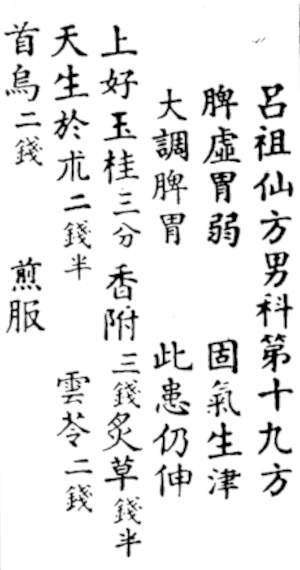 呂祖仙方男科第十九方
脾虛胃弱 固氣生津
大調脾胃 此患仍伸
上好玉桂三分 香附三錢 炙草錢半
天生於朮二錢半 雲苓二錢
首烏二錢 煎服